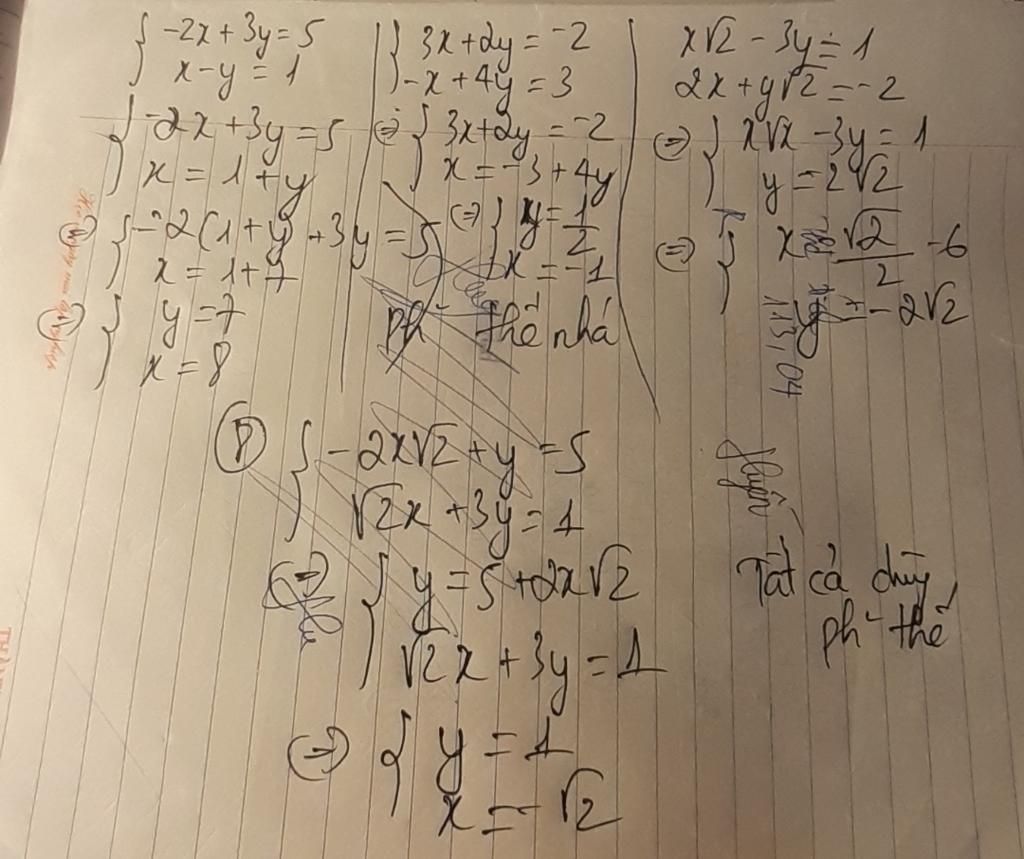 -2x+3y=5
x-y=1
-2x+3y=5
x=1+y
⇔ -2(1+y)+3y=5
x=1+7
⇔ y=7
x=8
3x+2y=-2
-x+4y=3
⇔ 3x+2y=-2
x=-3+4y
⇔ y=1/2
x=-1
ph² thế nhá
x√2-3y=1
2x+y√2=-2
⇔ x√x-3y=1
y=2√2
⇔ x √2/2-6
-2√2
-2x√2+y=5
√2x+3y=1
⇔ y=5+2x√2
√2x+3y=1
⇔ y=1
x=-√2
Tất cả dùng
ph² thế